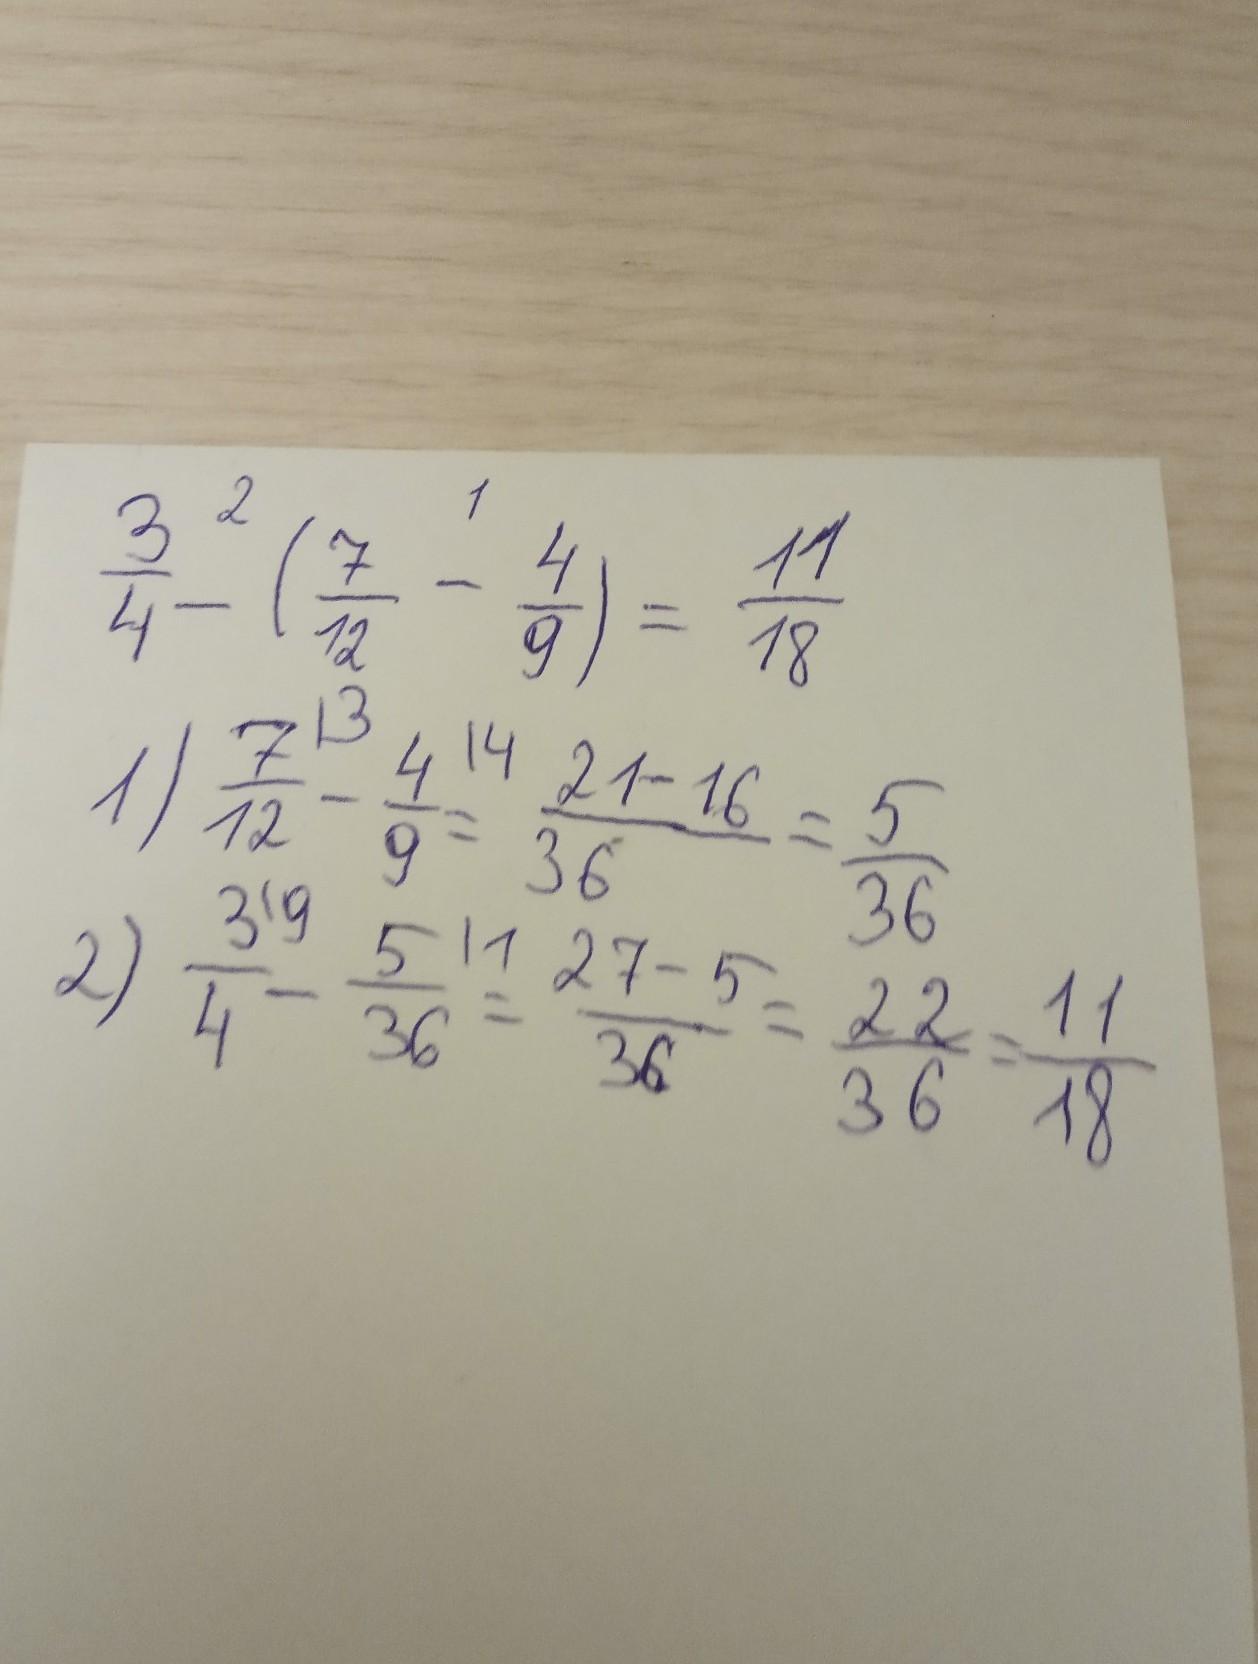 3/4 -² (7/12 -¹ 4/9) = 11/18
1) 7/12 |3 - 4/9 |4 = 21-16/36 = 5/36
2) 3/4 |9 - 5/36 |1 = 27-5/36 = 22/36 = 11/18